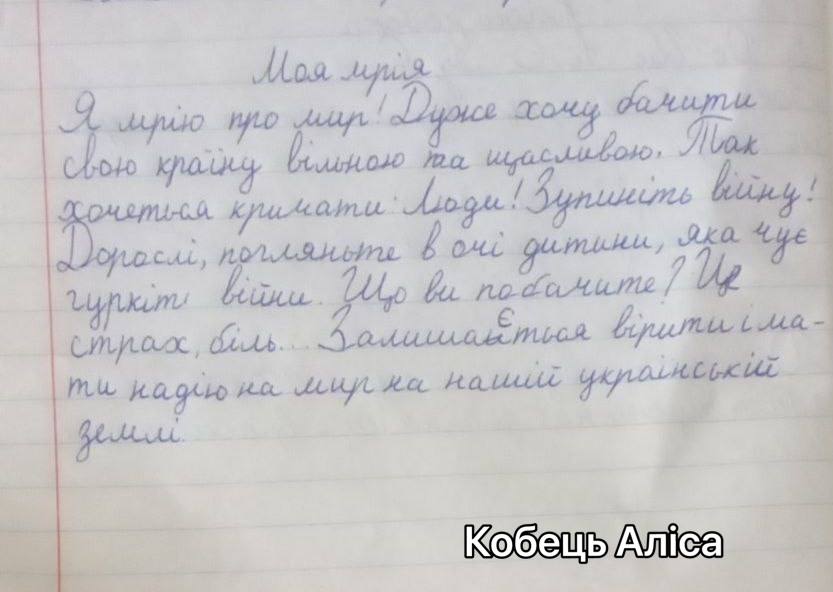 Моя мрія
Я мрію про мир! Дуже хочу бачити
свою країну вільною та щасливою. Так
хочеться кричати: Люди! Зупиніть війну!
Дорослі, погляньте в очі дитини, яка чує
гуркіт війни. Що ви побачите? Це
страх, біль... Залишається вірити і ма-
ти надію на мир на нашій українській
землі.
Кобець Аліса